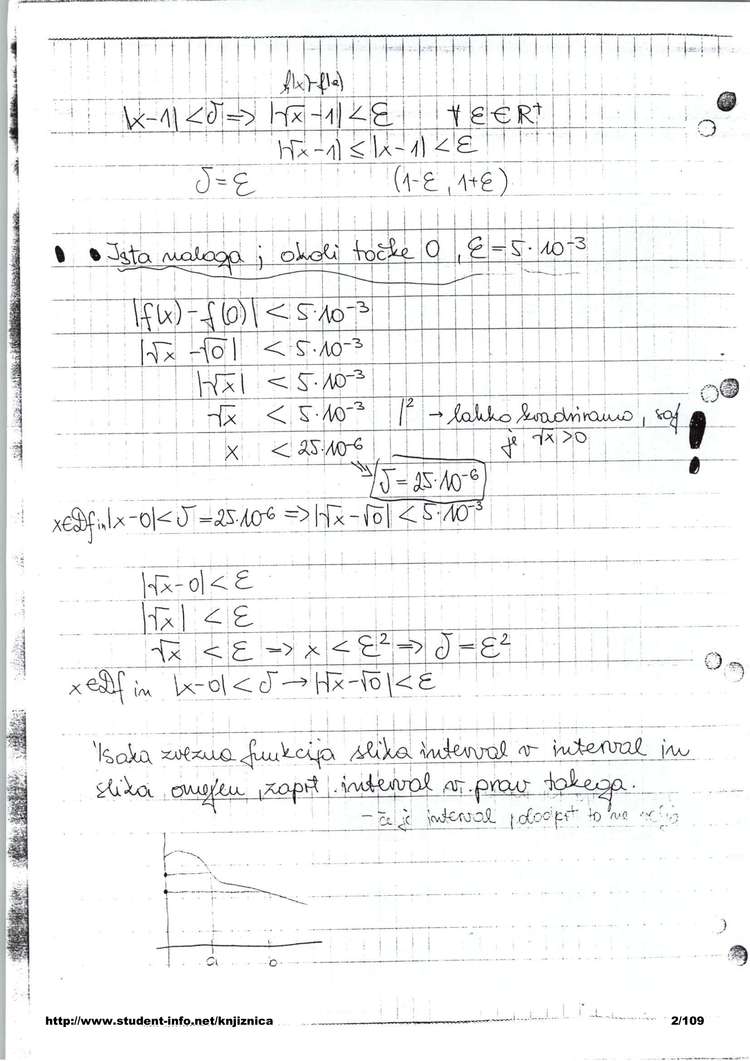 f(x)-f(a)
|x-1| < δ => |√x -1| < ε ∀ ε ∈ R⁺
|√x -1| ≤ |x-1| < ε
δ = ε (1-ε, 1+ε)
• Ista naloga ; okoli točke 0, ε = 5·10⁻³
|f(x) - f(0)| < 5·10⁻³
|√x - √0| < 5·10⁻³
|√x| < 5·10⁻³
√x < 5·10⁻³ |² → lahko kvadriramo, saj
je √x > 0 !
x < 25·10⁻⁶
=> δ = 25·10⁻⁶
x∈Df in |x-0| < δ = 25·10⁻⁶ => |√x - √0| < 5·10⁻³
|√x - 0| < ε
|√x| < ε
√x < ε => x < ε² => δ = ε²
x∈Df in |x-0| < δ → |√x - √0| < ε
Vsaka zvezna funkcija slika interval v interval in
slika omejen, zaprt interval v prav takega.
- če je interval odprt to ne
a b
http://www.student-info.net/knjiznica 2/109